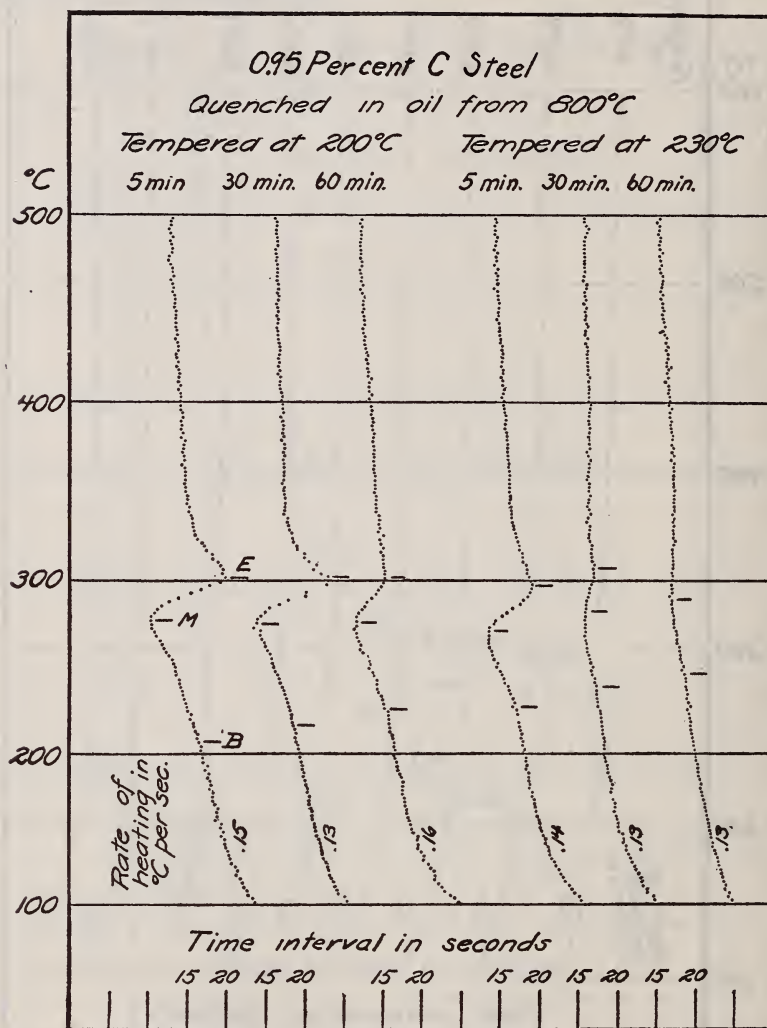 0.95 Percent C Steel
Quenched in oil from 800°C
Tempered at 200°C Tempered at 230°C
°C 5 min 30 min. 60 min. 5 min. 30 min. 60 min.
500
400
300
E
M
B
200
Rate of
heating in
°C per sec.
.15 .13 .16 .14 .13 .13.
100
Time interval in seconds
15 20 15 20 15 20 15 20 15 20 15 20